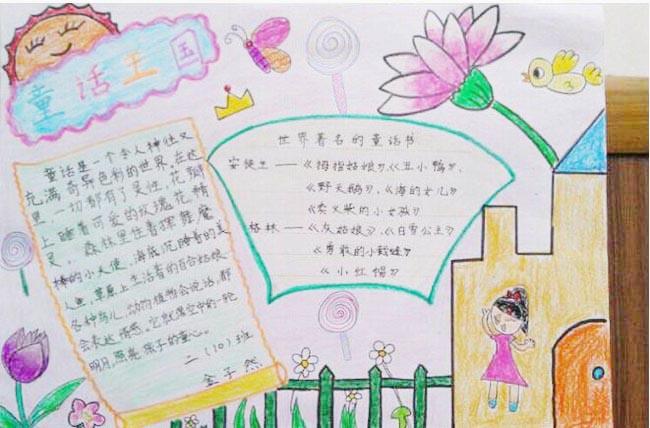 童话王国
童话是一个令人神往又
充满奇异色彩的世界。在这
里，一切都有了灵性，花瓣
上睡着可爱的玫瑰花精
灵，森林里住着挥舞魔
棒的小天使，海底沉睡着的美
人鱼，草原上生活着的百合姑娘，
各种鸟儿，动物植物会说话，都
会表达情感。它就像空中的一轮
明月，照亮孩子的童心。
二（10）班
金子然
世界著名的童话书
安徒生——《拇指姑娘》、《丑小鸭》、
《野天鹅》、《海的女儿》
《卖火柴的小女孩》
格林——《灰姑娘》、《白雪公主》
《勇敢的小裁缝》
《小红帽》